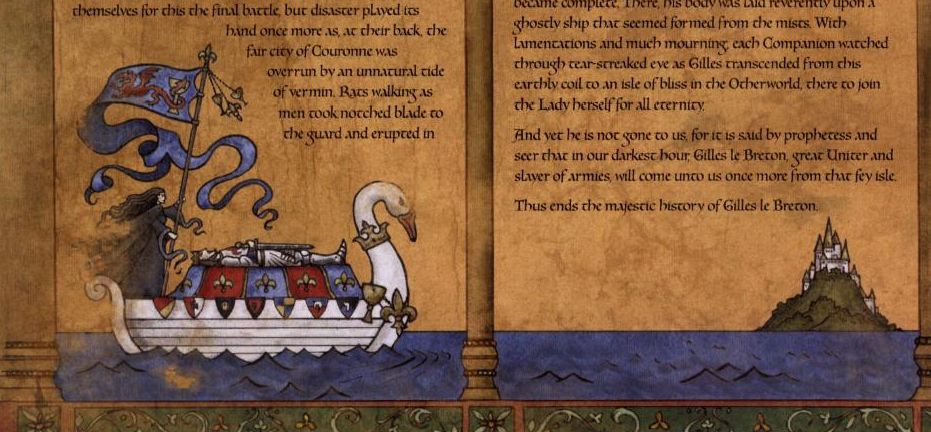 themselves for this the final battle, but disaster played its
hand once more as, at their back, the
fair city of Couronne was
overrun by an unnatural tide
of vermin. Rats walking as
men took notched blade to
the guard and erupted in
became complete. There, his body was laid reverently upon a
ghostly ship that seemed formed from the mists. With
lamentations and much mourning, each Companion watched
through tear-streaked eye as Gilles transcended from this
earthly coil to an isle of bliss in the Otherworld, there to join
the Lady herself for all eternity.
And yet he is not gone to us, for it is said by prophetess and
seer that in our darkest hour, Gilles le Breton, great Uniter and
slayer of armies, will come unto us once more from that fey isle.
Thus ends the majestic history of Gilles le Breton.